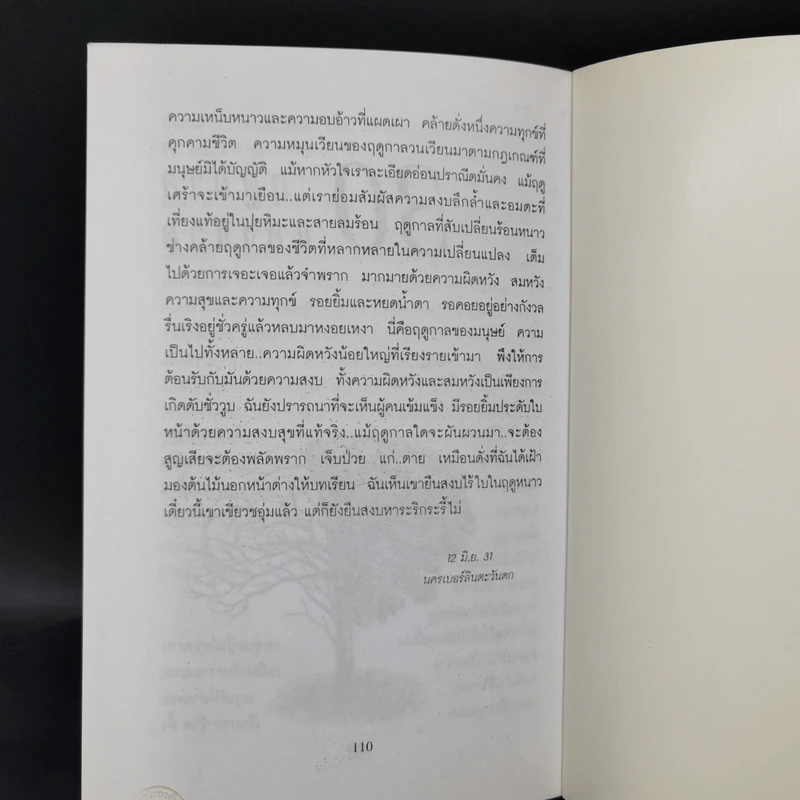 ความเหน็บหนาวและความอบอ้าวที่แผดเผา คล้ายดั่งหนึ่งความทุกข์ที่
คุกคามชีวิต ความหมุนเวียนของฤดูกาลวนเวียนมาตามกฎเกณฑ์ที่
มนุษย์มิได้บัญญัติ แม้หากหัวใจเราละเอียดอ่อนปราณีตมั่นคง แม้ฤดู
เศร้าจะเข้ามาเยือน..แต่เราย่อมสัมผัสความสงบลึกล้ำและอมตะที่
เที่ยงแท้อยู่ในปุยหิมะและสายลมร้อน ฤดูกาลที่สับเปลี่ยนร้อนหนาว
ช่างคล้ายฤดูกาลของชีวิตที่หลากหลายในความเปลี่ยนแปลง เต็ม
ไปด้วยการเจอะเจอแล้วจำพราก มากมายด้วยความผิดหวัง สมหวัง
ความสุขและความทุกข์ รอยยิ้มและหยดน้ำตา รอคอยอยู่อย่างกังวล
รื่นเริงอยู่ชั่วครู่แล้วหลบมาหงอยเหงา นี่คือฤดูกาลของมนุษย์ ความ
เป็นไปทั้งหลาย..ความผิดหวังน้อยใหญ่ที่เรียงรายเข้ามา พึงให้การ
ต้อนรับกับมันด้วยความสงบ ทั้งความผิดหวังและสมหวังเป็นเพียงการ
เกิดดับชั่ววูบ ฉันยังปรารถนาที่จะเห็นผู้คนเข้มแข็ง มีรอยยิ้มประดับใบ
หน้าด้วยความสงบสุขที่แท้จริง..แม้ฤดูกาลใดจะผันผวนมา..จะต้อง
สูญเสียจะต้องพลัดพราก เจ็บป่วย แก่..ตาย เหมือนดั่งที่ฉันได้เฝ้า
มองต้นไม้นอกหน้าต่างให้บทเรียน ฉันเห็นเขายืนสงบไร้ใบในฤดูหนาว
เดี๋ยวนี้เขาเขียวชอุ่มแล้ว แต่ก็ยังยืนสงบหาระริกระรี้ไม่
12 มิ.ย. 31
นครเบอร์ลินตะวันตก
110